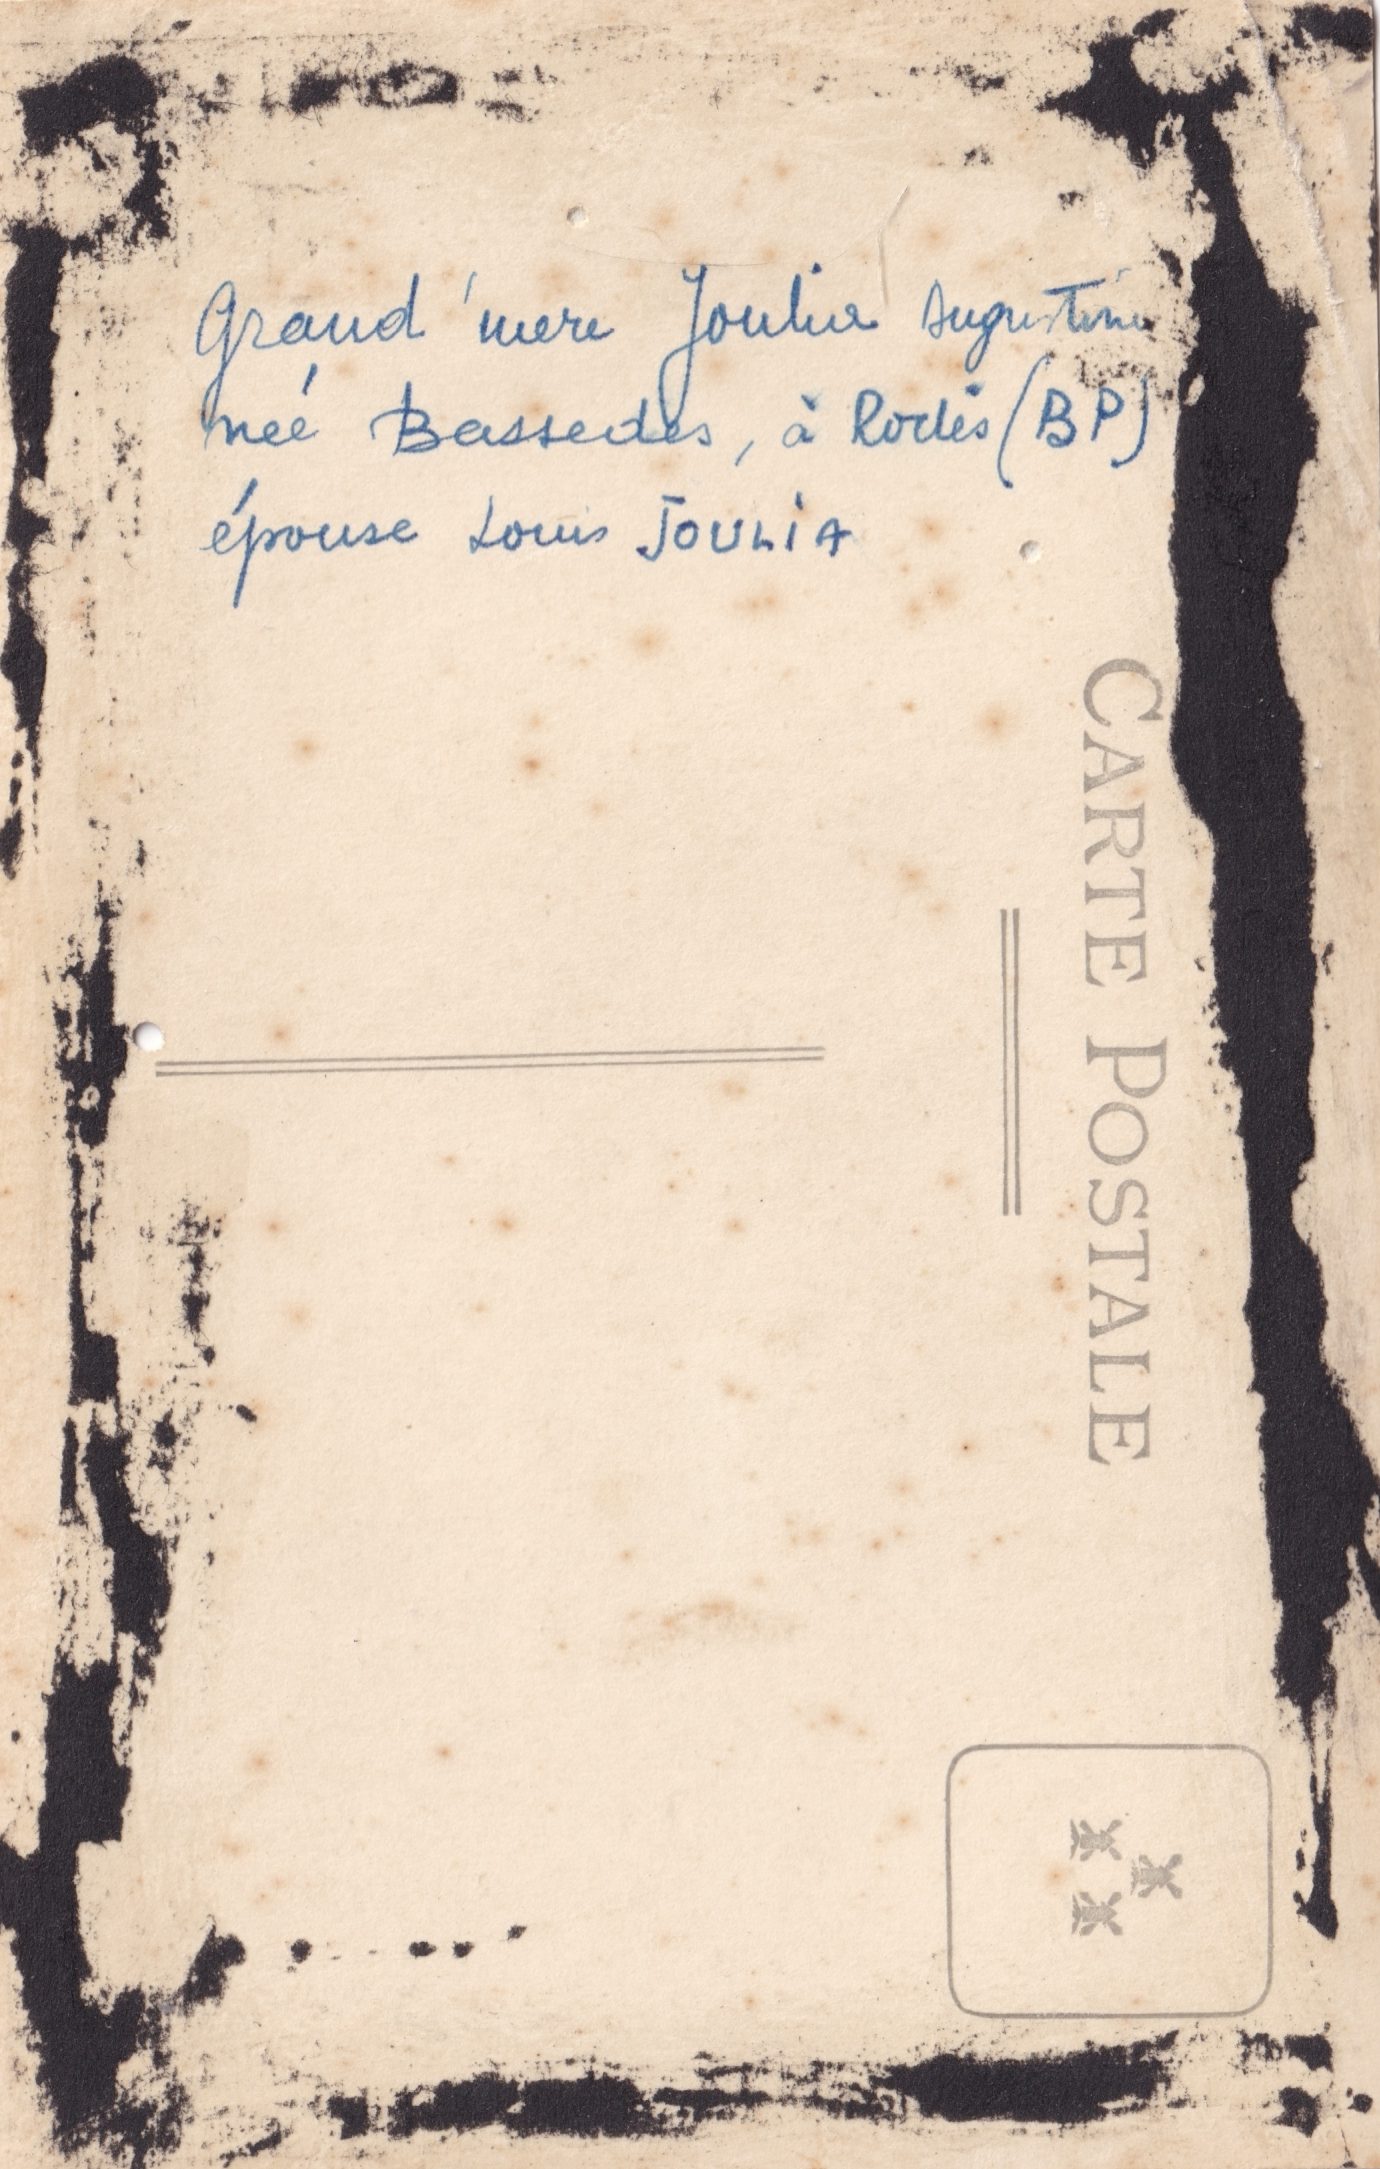 Grand'mere Joulia Augustine
née Bassedes, à Rodès (BP)
épouse Louis JOULIA
CARTE POSTALE